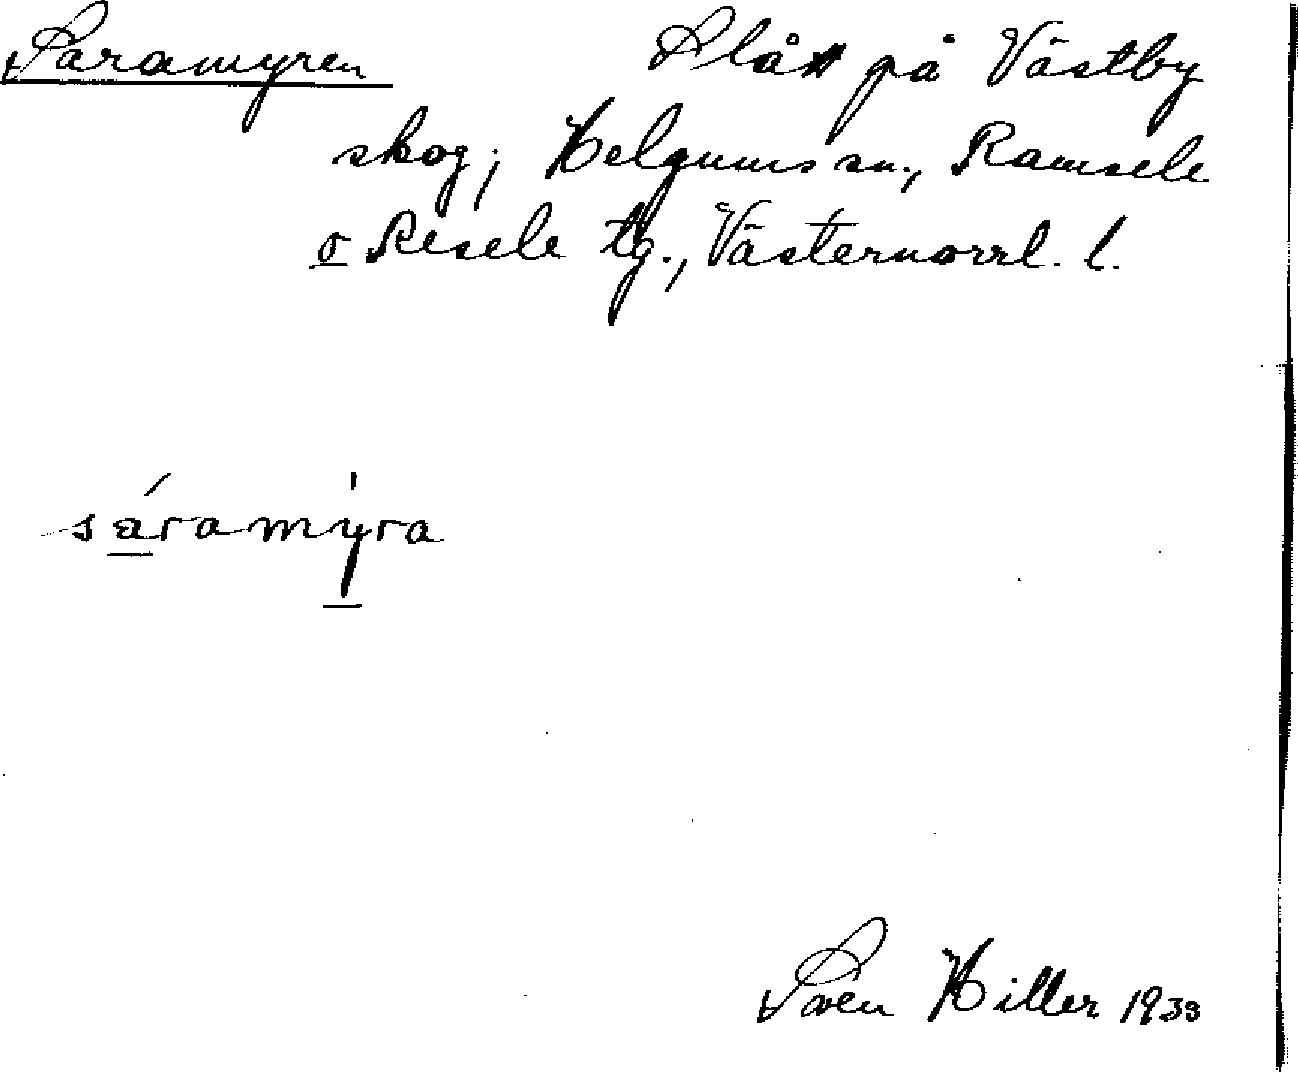 Saramyren Slått på Västby
skog; Helgums sn., Ramsele
o Resele tg., Västernorrl. l.
sáramy̍ra
Sven Hiller 1933